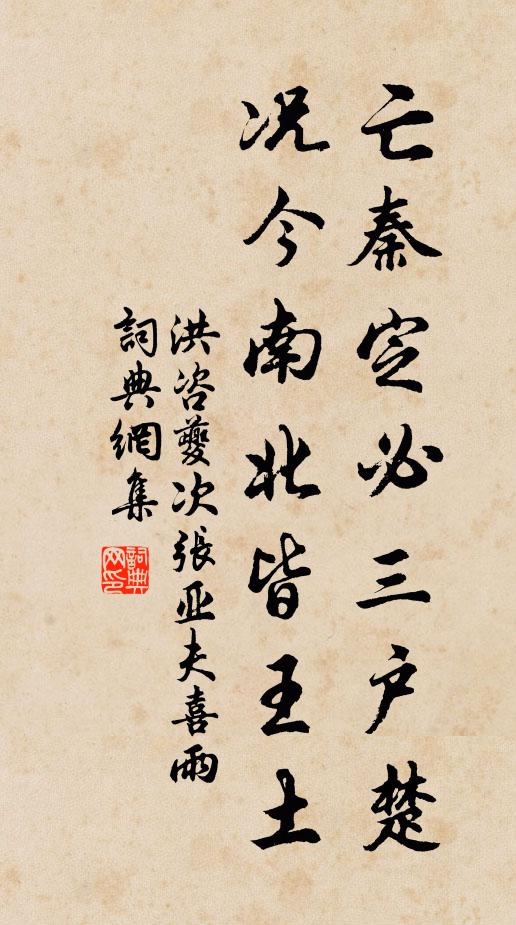 亡秦定必三户楚
况今南北皆王土
洪咨夔次張亚夫喜雨
詞典網集
詞典网印